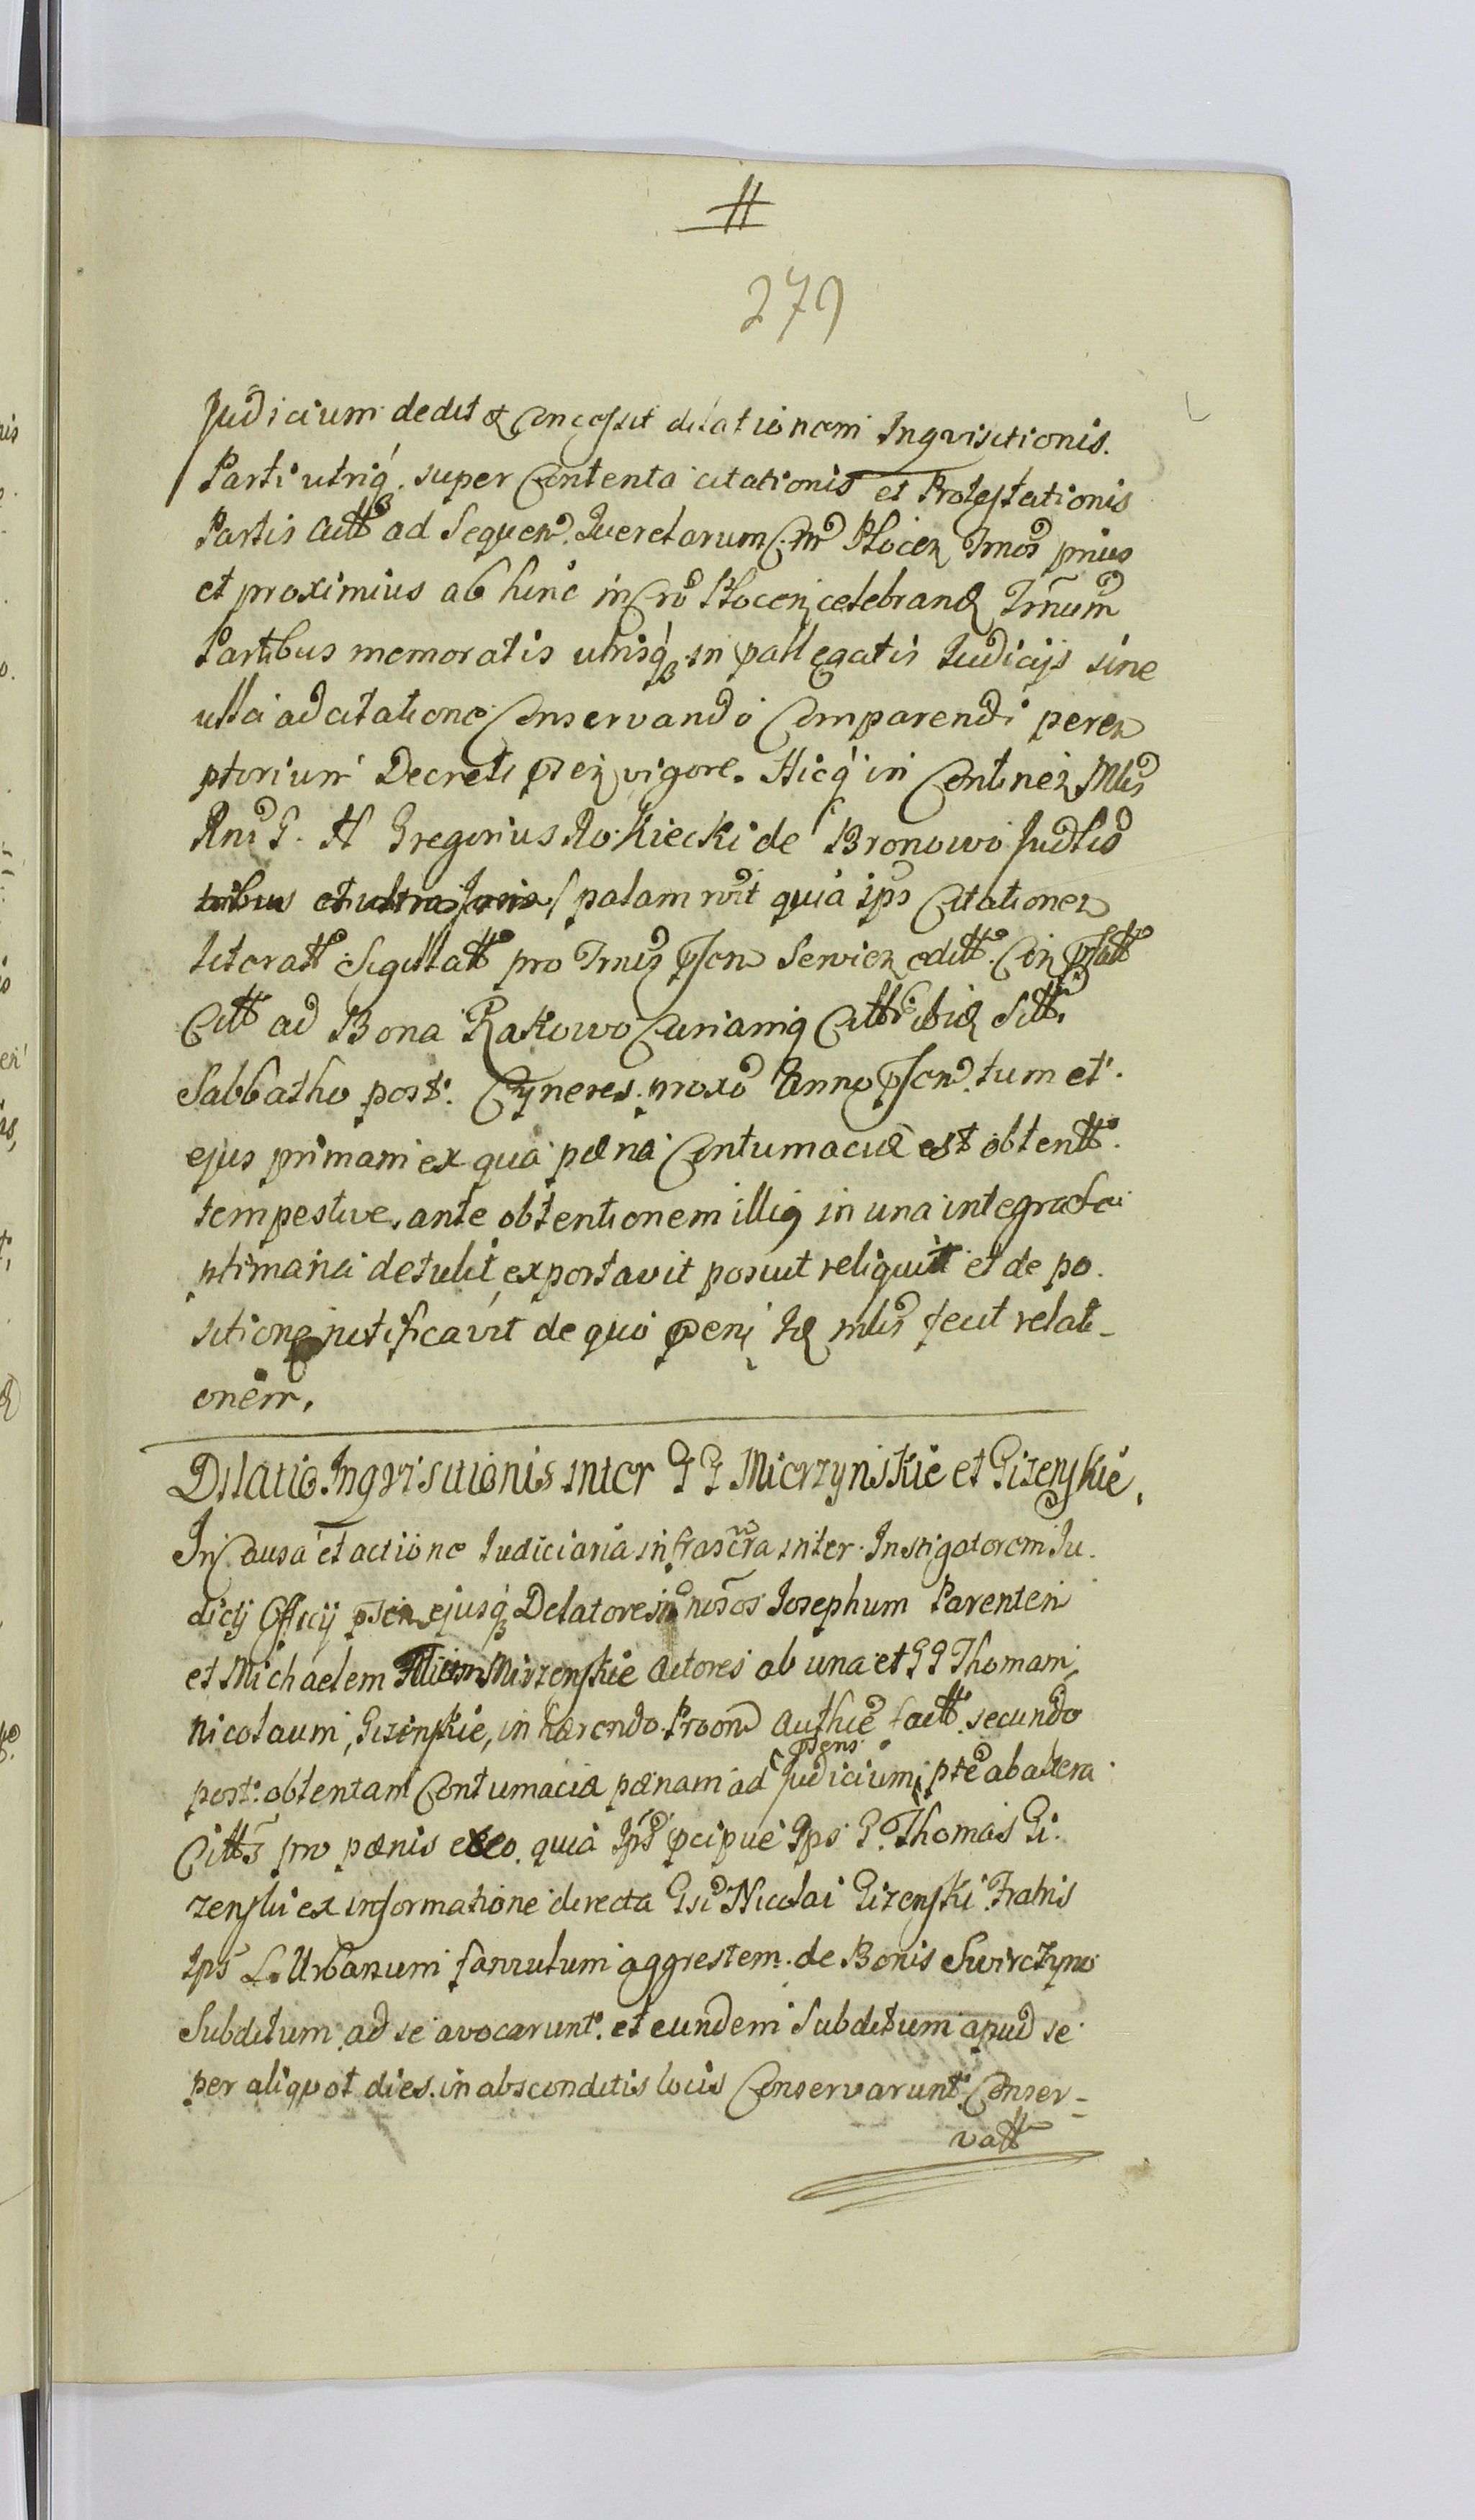 #
279
Judicium dedit et Concessit dilationem Inqvisitionis.
Parti utriq. super Contenta citationis et Protestationis
Partis Actt ad Seqven. Qverelarum Plocen Trnos prius
et proximius ab hinc in Cro Plocen celebrand Trnum
Partibus memoratis utrisq in pallegatis Judicijs sine
ulla adcitatione Conservando Comparendi perem
ptorium Decreti psen vigore. Hicq in Continen Mtis
Rni G. N Gregorius Rokiecki de Bronowo Judtio
palam rvit quia ips Citationem
literatt Sigillatt pro Trnis psen Servien editt.
Citt ad Bona Rakowo Curiamq ibid Sitt.
Sabbatho post. Cyneres. proxo Anno psen. tum et.
ejus primam ex qua pæna Contumaciæ est obtentt.
tempestive, ante obtentionem illiq in una integra se
ptimana detulit, exportavit posuit reliquit et de po.
sitione notificavit de quo peni Id mtis fecit relati-
onem.
Dilatio Inqvisitionis inter G G Mierzynskie et Gizenskie,
In Causa et actione Judiciaria infrascra inter Instigatorem Ju.
dicij Officij psen ejusq Delatores nosos Josephum Parentem
et Michaelem Filium Mirzenskie Actores ab una et G G Thomam,
Nicolaum, Gizenskie, in hærendo Proom Authie factt. secundo
post. obtentam Contumaciæ pænam ad psens Judicium, pte ab altera
Citts pro pænis eo. quia Ips pcipue Ips G. Thomas Gi.
zenski ex informatione directa Gsi Nicolai Gizenski Fratris
Ips L. Urbanum famulum aggrestem. de Bonis Swirczyno
Subditum ad se avocarunt. et eundem Subditum apud se
per aliqvot dies in absconditis locis Conservarunt. Conser-
vatt